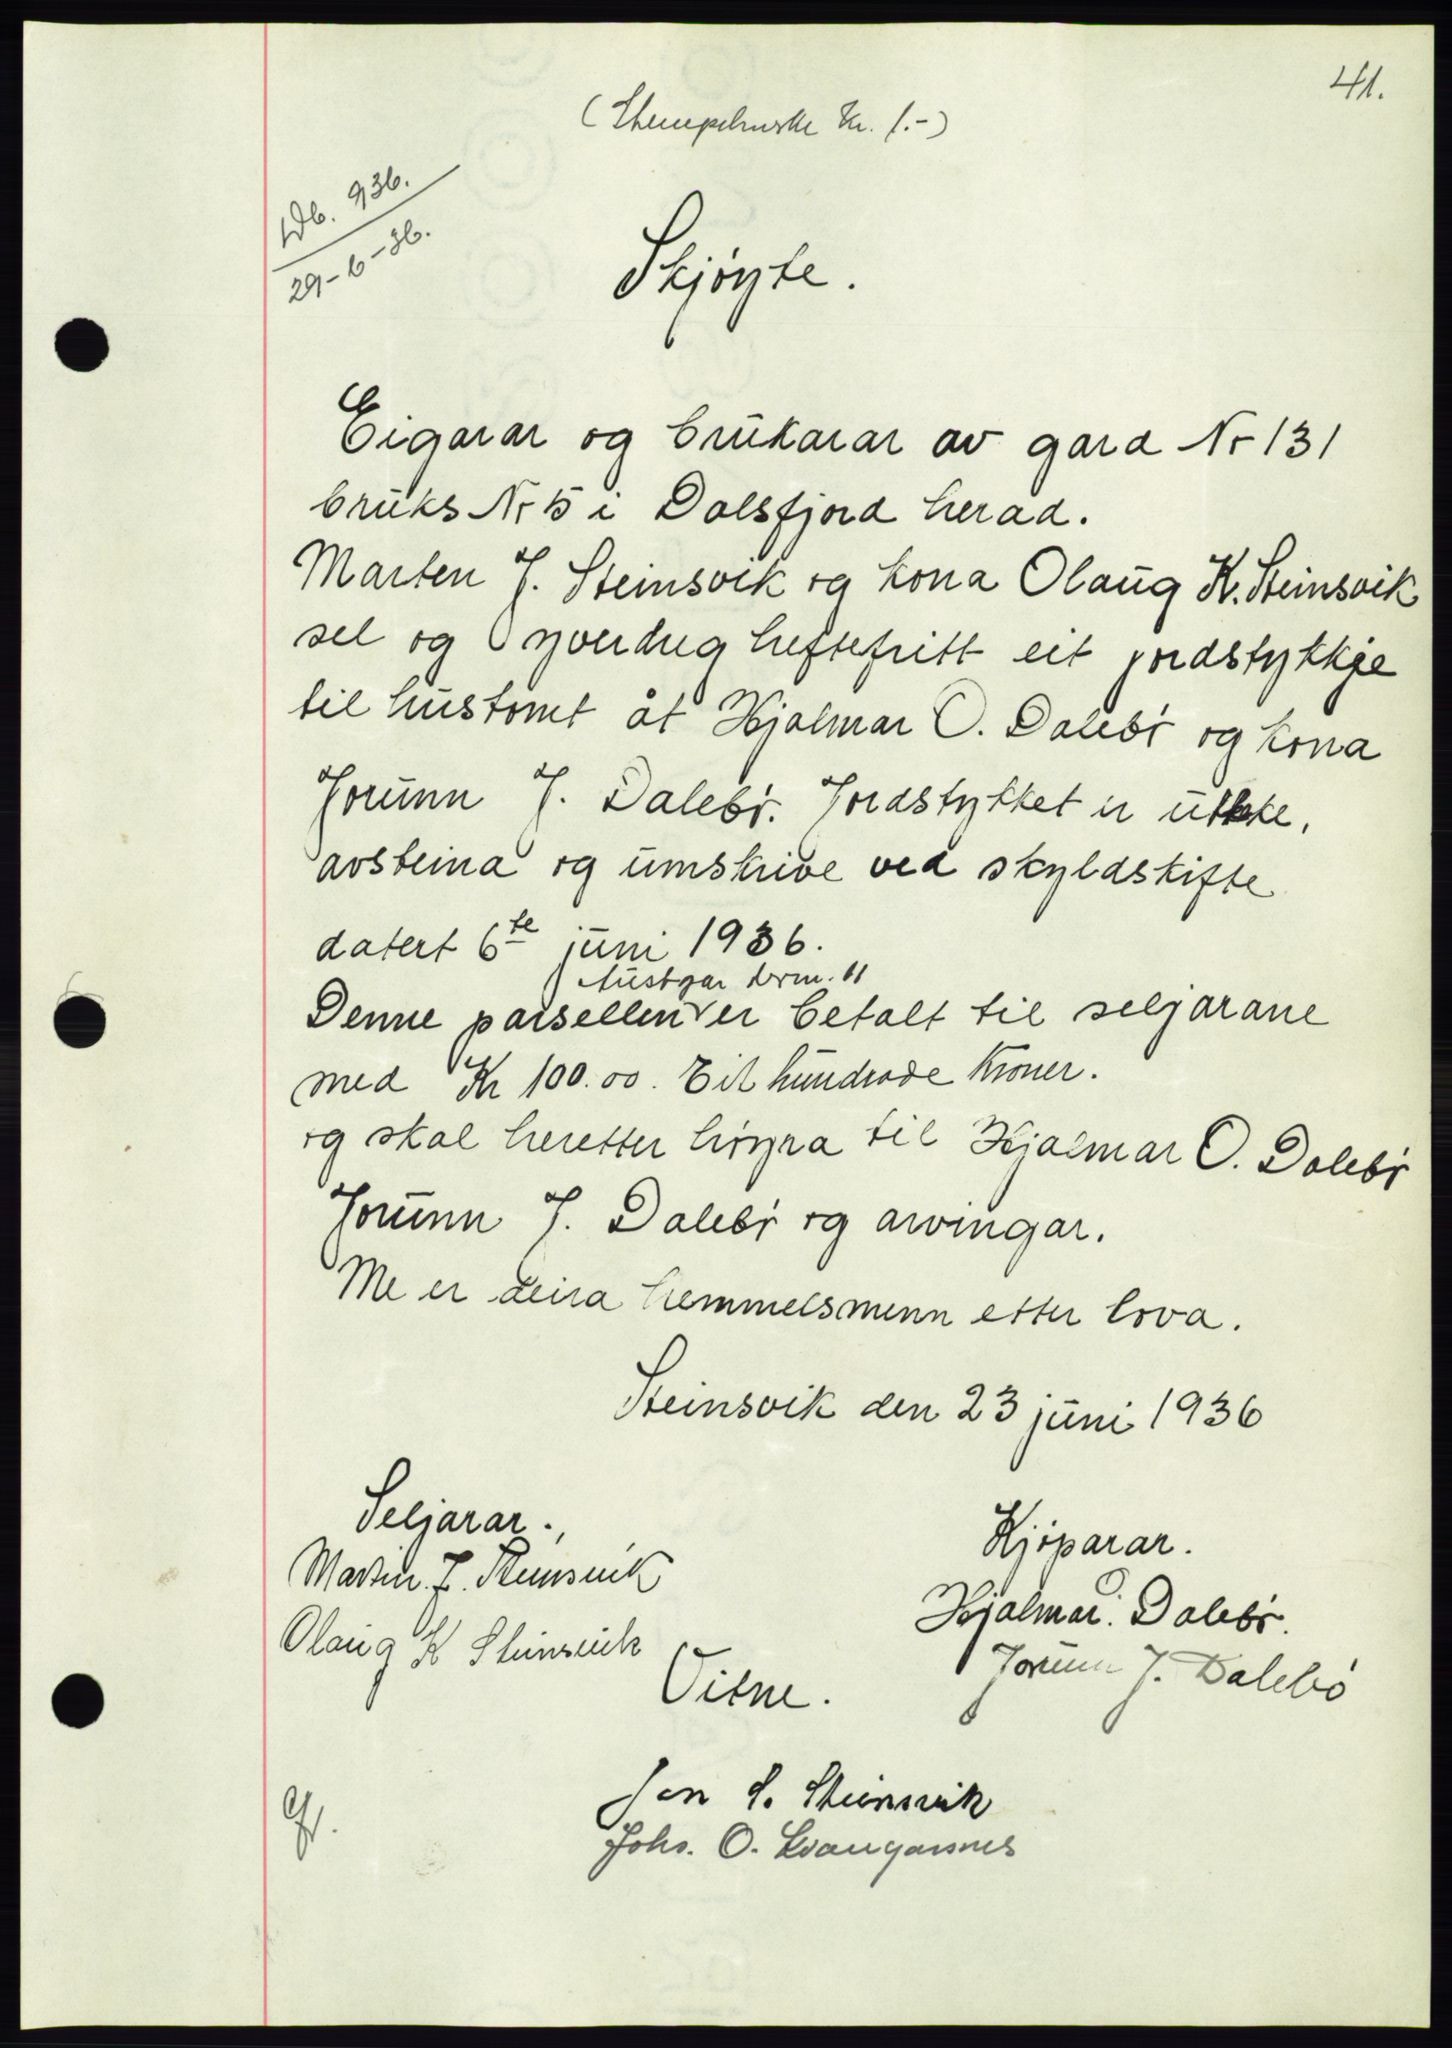 41.
(Stempelmerke Kr. 1.-)
Db. 936.
29-6-36.
Skjøyte.
Eigarar og brukarar av gard Nr 131
bruks Nr 5 i Dalsfjord herad.
Marten J. Steinsvik og kona Olaug K. Steinsvik
sel og yverdreg heftefritt eit jordstykkje
til hustomt åt Hjalmar O. Dalebø og kona
Jorunn J. Dalebø. Jordstykket er utskte,
avsteina og umskrive ved skyldskifte
datert 6te juni 1936.
Austgar brm. 11
Denne parsellen er betalt til seljarane
med Kr 100.00. Eit hundrade Kroner.
og skal heretter høyra til Hjalmar O. Dalebø
Jorunn J. Dalebø og arvingar.
Me er deira hemmelsmenn etter lova.
Steinsvik den 23 juni 1936
Seljarar.
Martin J. Steinsvik
Olaug K Steinsvik
Kjøparar.
Hjalmar O. Dalebø.
Jorunn J. Dalebø
Vitne.
Jon S. Steinsvik
Johs. O.